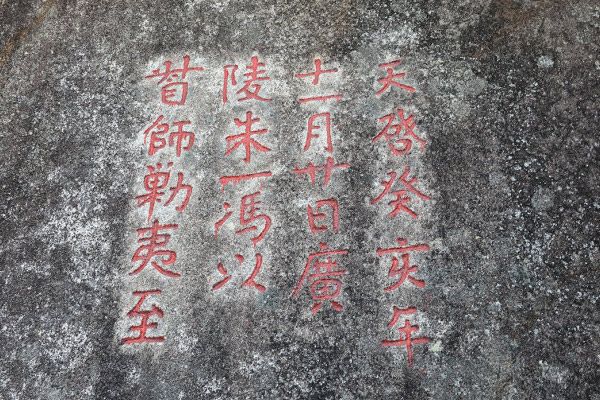 天啓癸亥年
十一月廿日廣
陵朱一馮以
督師勦夷至